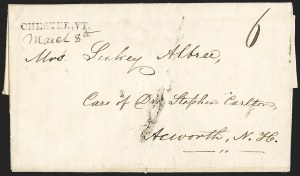 CHESTER, VT.
March 8th
6
Mrs Sukey Albree,
Care of Dr. Stephen Carlton,
Acworth, N. H.